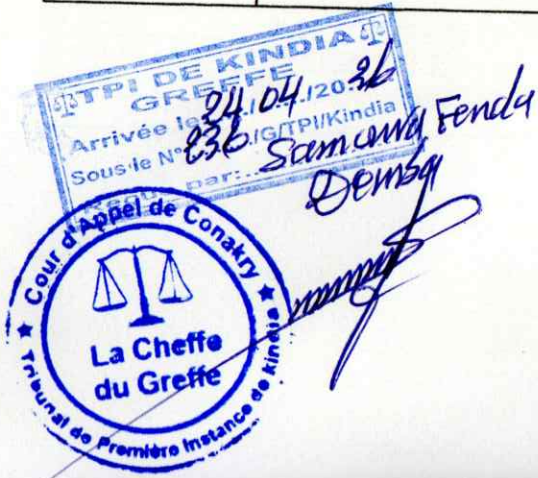 TPI DE KINDIA
GREFFE
Arrivée le 24/04/2026
Sous le N° 236/G/TPI/Kindia
par: Fenda
Demba
Cour d'Appel de Conakry
La Cheffe
du Greffe
Tribunal de Première Instance de Kindia